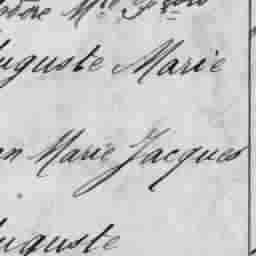 uguste Marie
en Marie Jacques
uguste